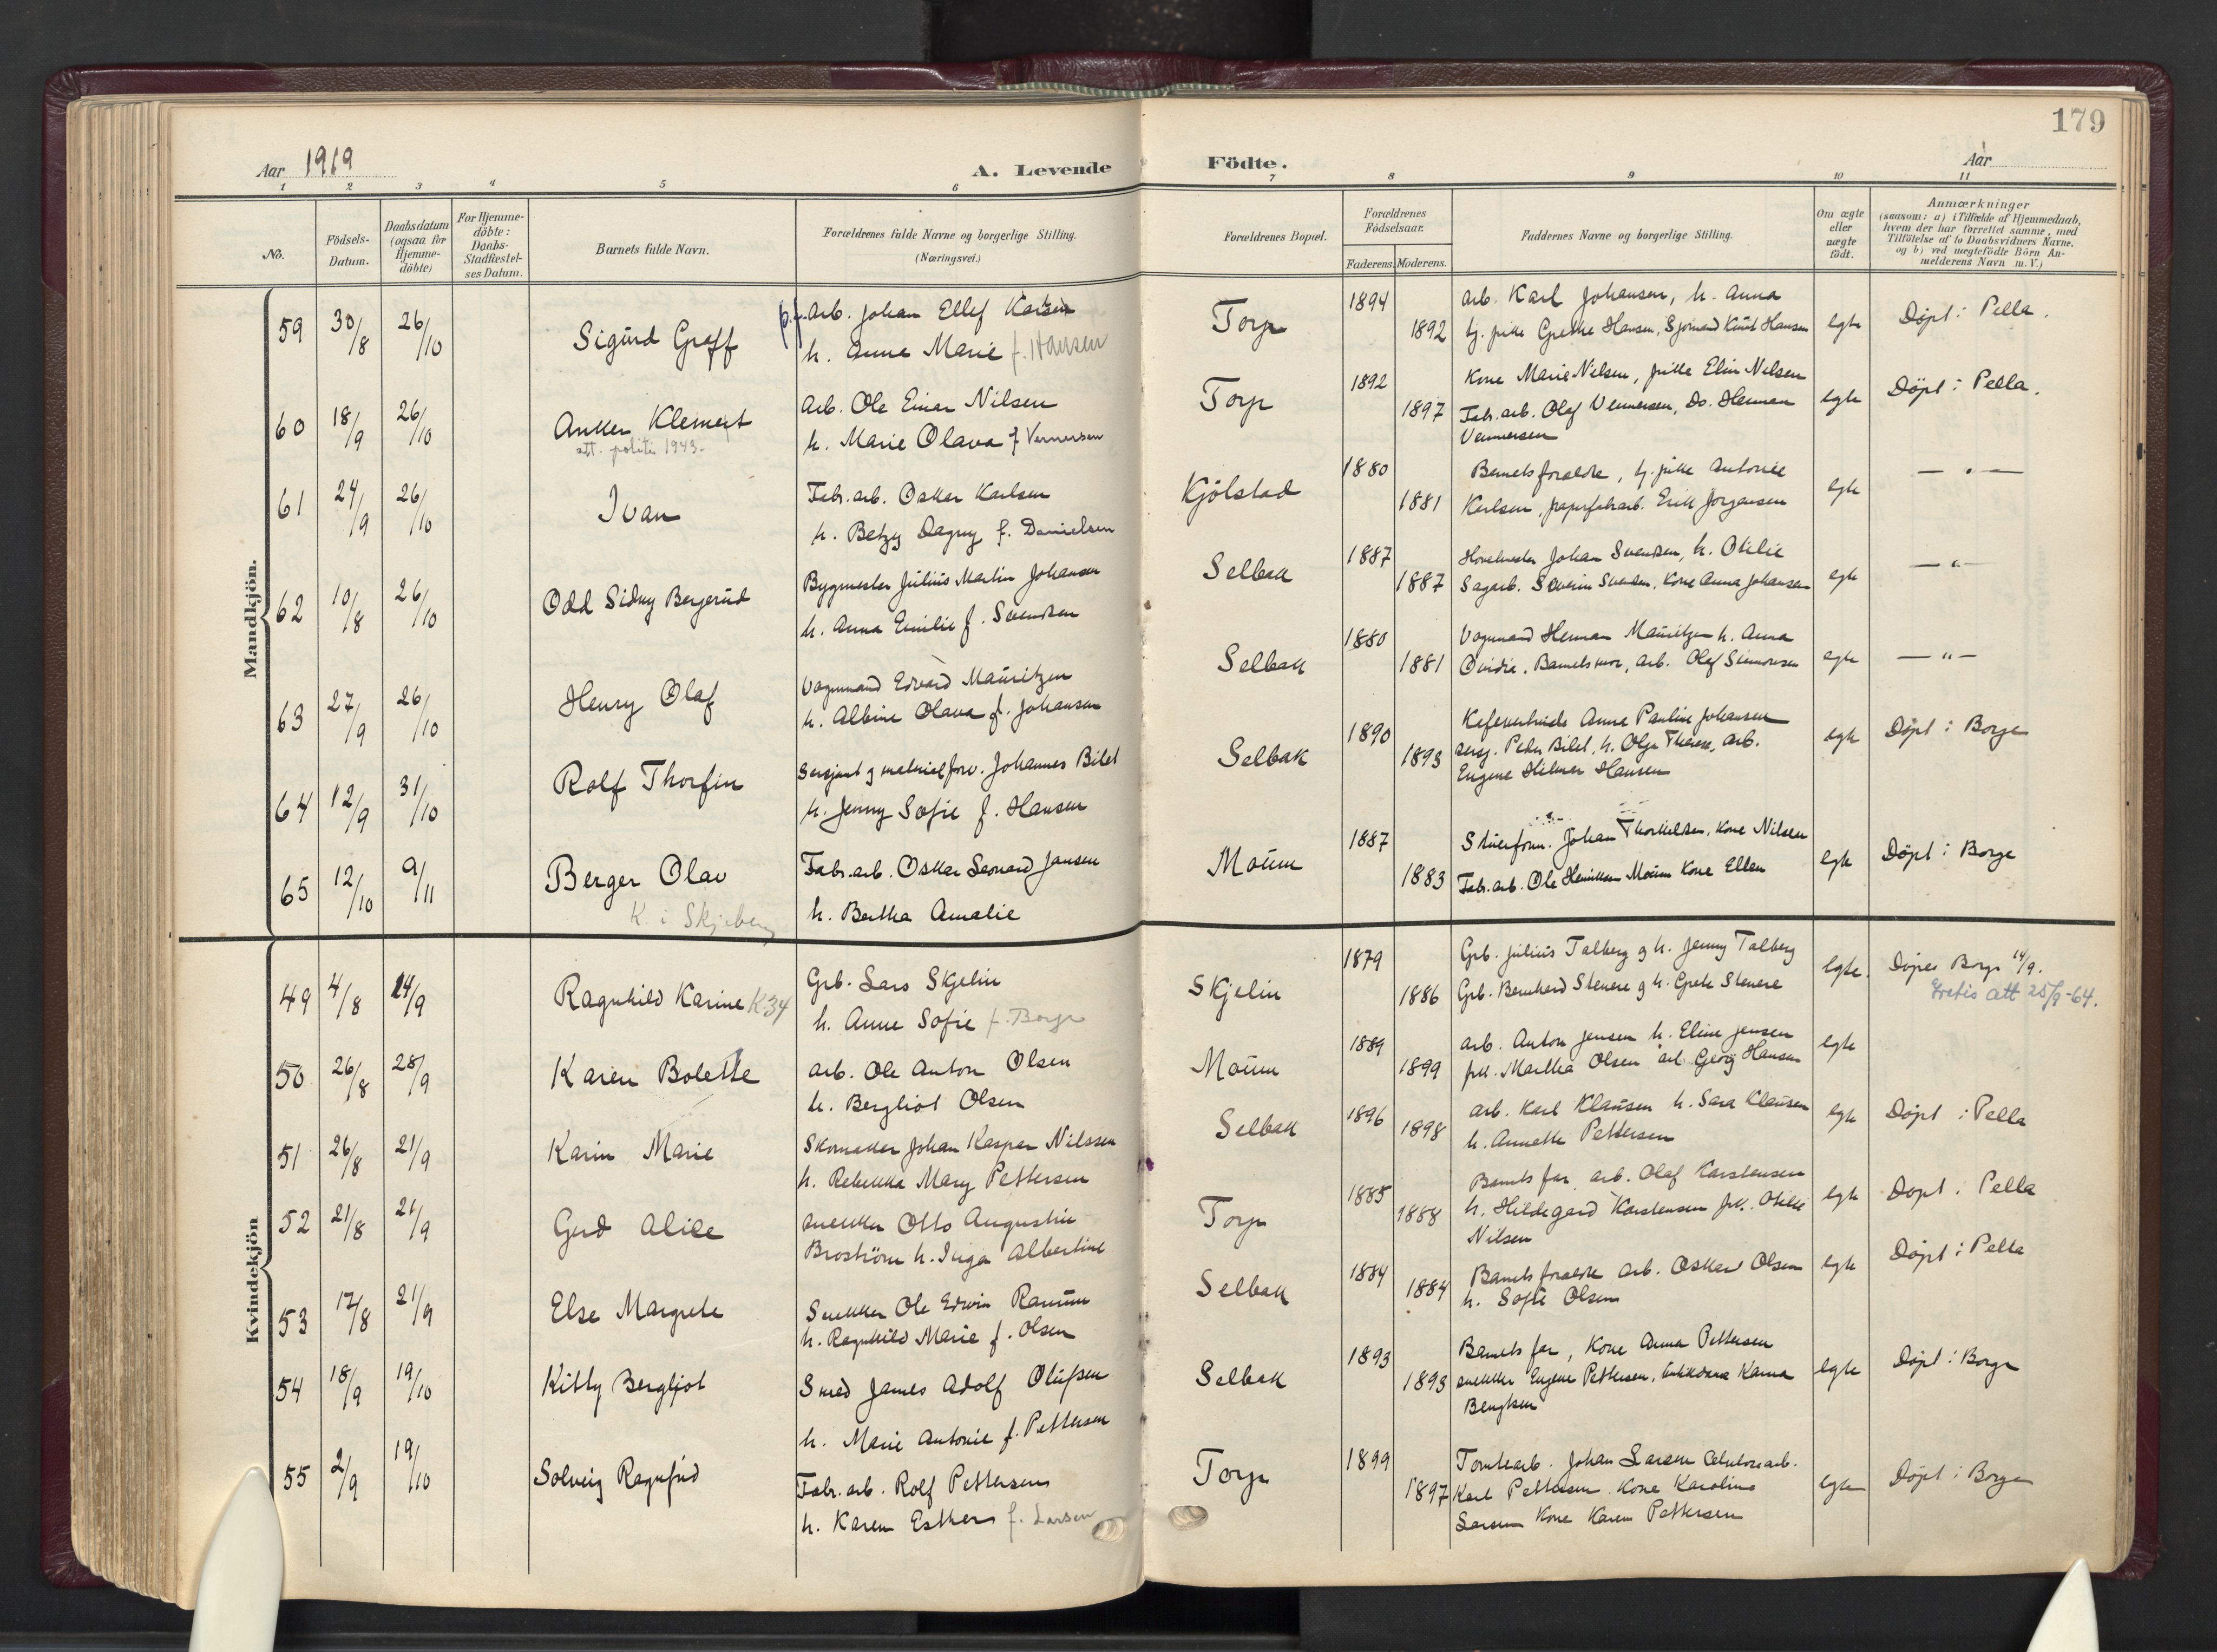 179
Aar 1919
A. Levende
Födte.
Aar
1 2 3 4 5 6 7 8 9 10 11
No.
Födsels-
Datum.
Daabsdatum
(ogsaa for
Hjemme-
döbte)
For Hjemme-
döbte:
Daabs-
Stadfæstel-
ses Datum.
Barnets fulde Navn.
Forældrenes fulde Navne og borgerlige Stilling.
(Næringsvei.)
Forældrenes Bopæl.
Forældrenes
Födselsaar.
Faderens. Moderens.
Faddernes Navne og borgerlige Stilling.
Om ægte
eller
uægte
födt.
Anmærkninger
(saasom: a) i Tilfælde af Hjemmedaab,
hvem der har forrettet samme, med
Tilföielse af to Daabsvidners Navne.
og b) ved uægtefödte Börn An-
melderens Navn m. V.)
Mandkjön.
59 30/8 26/10 Sigurd Graff
p.f. Arb. Johan Ellef Karlsen
h. Anne Marie f. Hansen
Torp 1894 1892
Arb. Karl Johansen, h. Anna
tj. pike Grethe Hansen, Sjömand Knut Hansen
egte Döpt i Pella.
60 18/9 26/10 Anker Klement
att. politi 1943.
Arb. Ole Einar Nilsen
h. Marie Olava f Vernersen
Torp 1892 1897
Kone Marie Nilsen, pike Elin Nilsen
Fabr. arb. Olaf Vernersen, Do. Herman
Vernersen
egte Döpt i Pella.
61 24/9 26/10 Ivan
Fabr. arb. Oskar Karlsen
h. Betzy Dagny f. Danielsen
Kjölstad 1880 1881
Barnets forældre, tj. pike Antonie
Karlsen, papirfabrarb. Erik Jörgensen
egte — " —
62 10/8 26/10 Odd Sidny Bergerud
Bygmester Julius Martin Johansen
h. Anna Emilie f. Svendsen
Selbak 1887 1887
Hövelmester Johan Svendsen, h. Otilie
Sagarb. Severin Svendsen, Kone Anna Johansen
egte — " —
63 27/9 26/10 Henry Olaf
Vognmand Edvard Mauritzen
h. Albine Olava f. Johansen
Selbak 1880 1881
Vognmand Herman Mauritzen h. Anna
Ovidie, Barnets mor, arb. Olaf Simonsen
egte — " —
64 12/9 31/10 Rolf Thorfin
Sersjant og materielforv. Johannes Bilet
h. Jenny Sofie f. Hansen
Selbak 1890 1893
Kafevertinde Anna Pauline Johansen
Serg. Peder Bilet, h. Olga Therese, arb.
Eugene Hilmar Hansen
egte Döpt i Borge
65 12/10 9/11 Berger Olav
K. i Skjeberg
Fabr. arb. Oskar Leonard Jansen
h. Bertha Amalie
Moum 1887 1883
Stuerform. Johan Thorkildsen, Kone Nilsen
Fabr. arb. Ole Henriksen Moum Kone Ellen
egte Döpt i Borge
Kvindekjön
49 4/8 14/9 Ragnhild Karine K34
Grb. Lars Skjelin
h. Anne Sofie f. Borge
Skjelin 1879 1886
Grb. Julius Talberg og h. Jenny Talberg
Grb. Bernhard Stenere og h. Grete Stenere
egte. Döpes Borge 14/9.
Gretis att 25/9-64.
50 26/8 28/9 Karen Bolette
arb. Ole Anton Olsen
h. Bergliot Olsen
Moum 1889 1899
arb. Anton Jensen h. Eline Jensen
pk. Martha Olsen arb Georg Hansen
egte
51 26/8 21/9 Karin Marie
Skomaker Johan Kasper Nilssen
h. Rebekka Mary Pettersen
Selbak 1896 1898
arb. Karl Klausen h. Sara Klausen
h. Annette Pettersen
egte Döpt i Pella
52 21/8 21/9 Gerd Alice
snekker Otto Augustin
Broström h. Inga Albertine
Torp 1885 1888
Barnets far arb. Olaf Karstensen
h. Hildegard Karstensen pk. Otilie
Nilsen
egte Döpt i Pella
53 17/8 21/9 Else Margrete
Snekker Ole Edvin Ramm
h. Ragnhild Marie f. Olsen
Selbak 1884 1884
Barnets forældre arb. Oskar Olsen
h. Sofie Olsen
egte Döpt i Pella
54 18/9 19/10 Kitty Bergljot
Smed James Adolf Olufsen
h. Marie Antonie f. Pettersen
Selbak 1893 1893
Barnets far, Kone Anna Pettersen
snekker Eugene Pettersen, butikdame Karna
Bengtsen
egte Döpt i Borge
55 2/9 19/10 Solveig Ragnfrid
Fabr. arb. Rolf Pettersen
h. Karen Esther f. Larsen
Torp 1899 1897
Tomtearb. Johan Larsen Celulosearb.
Karl Pettersen Kone Karoline
Larsen Kone Karen Pettersen
egte Döpt i Borge